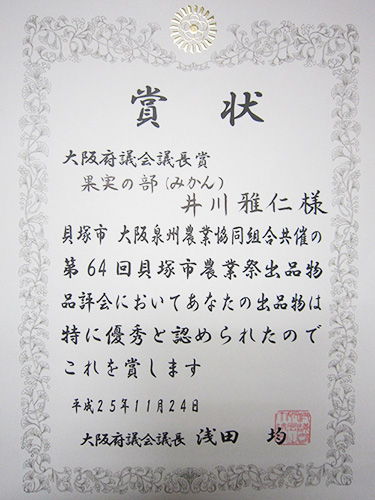 賞状
大阪府議会議長賞
果実の部(みかん)
井川雅仁様
貝塚市 大阪泉州農業協同組合共催の
第64回貝塚市農業祭出品物
品評会においてあなたの出品物は
特に優秀と認められたので
これを賞します
平成25年11月24日
大阪府議会議長 浅田 均